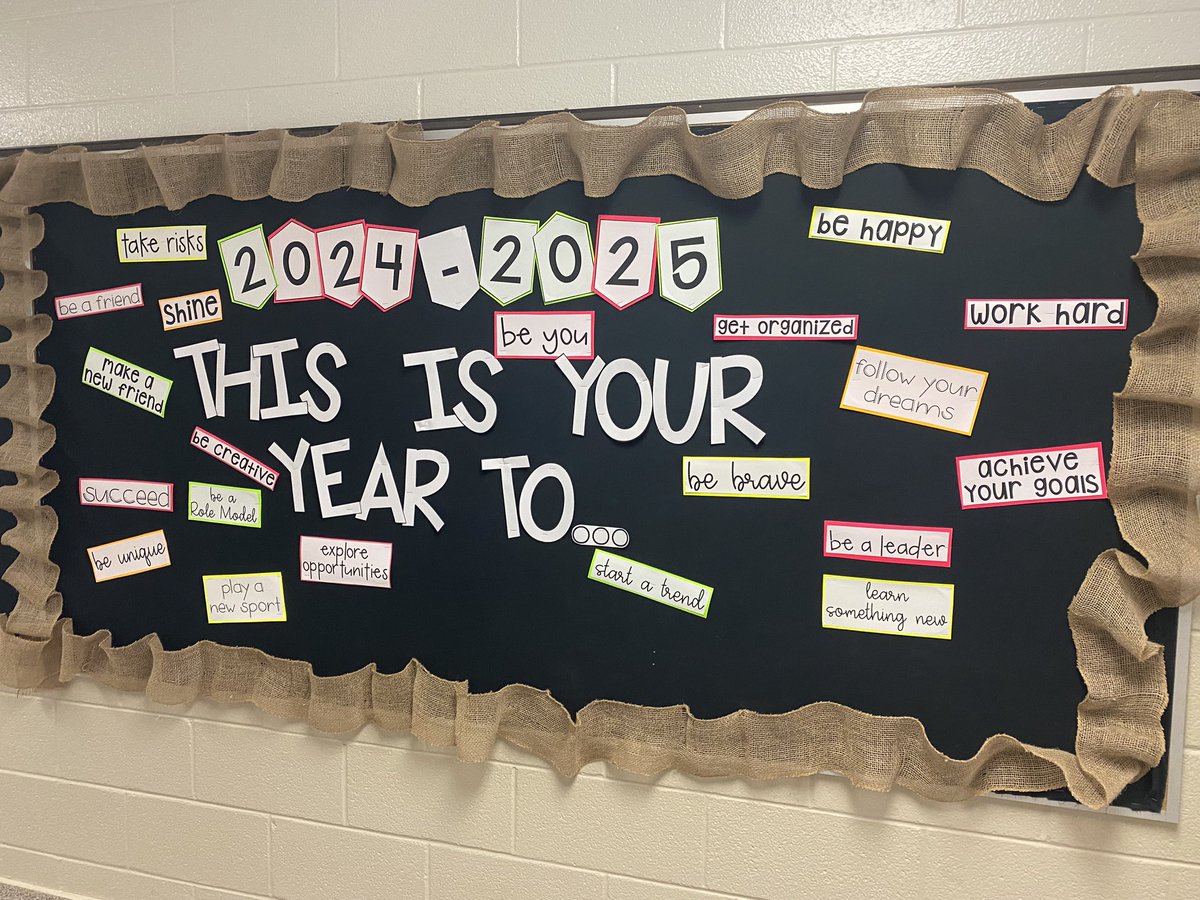 take risks
2024-2025
be happy
be a friend
Shine
be you
get organized
work hard
THIS IS YOUR
YEAR TO...
make a
new friend
follow your
dreams
be creative
be brave
achieve
your goals
succeed
be a
Role Model
be unique
explore
opportunities
play a
new sport
start a trend
be a leader
learn
something new